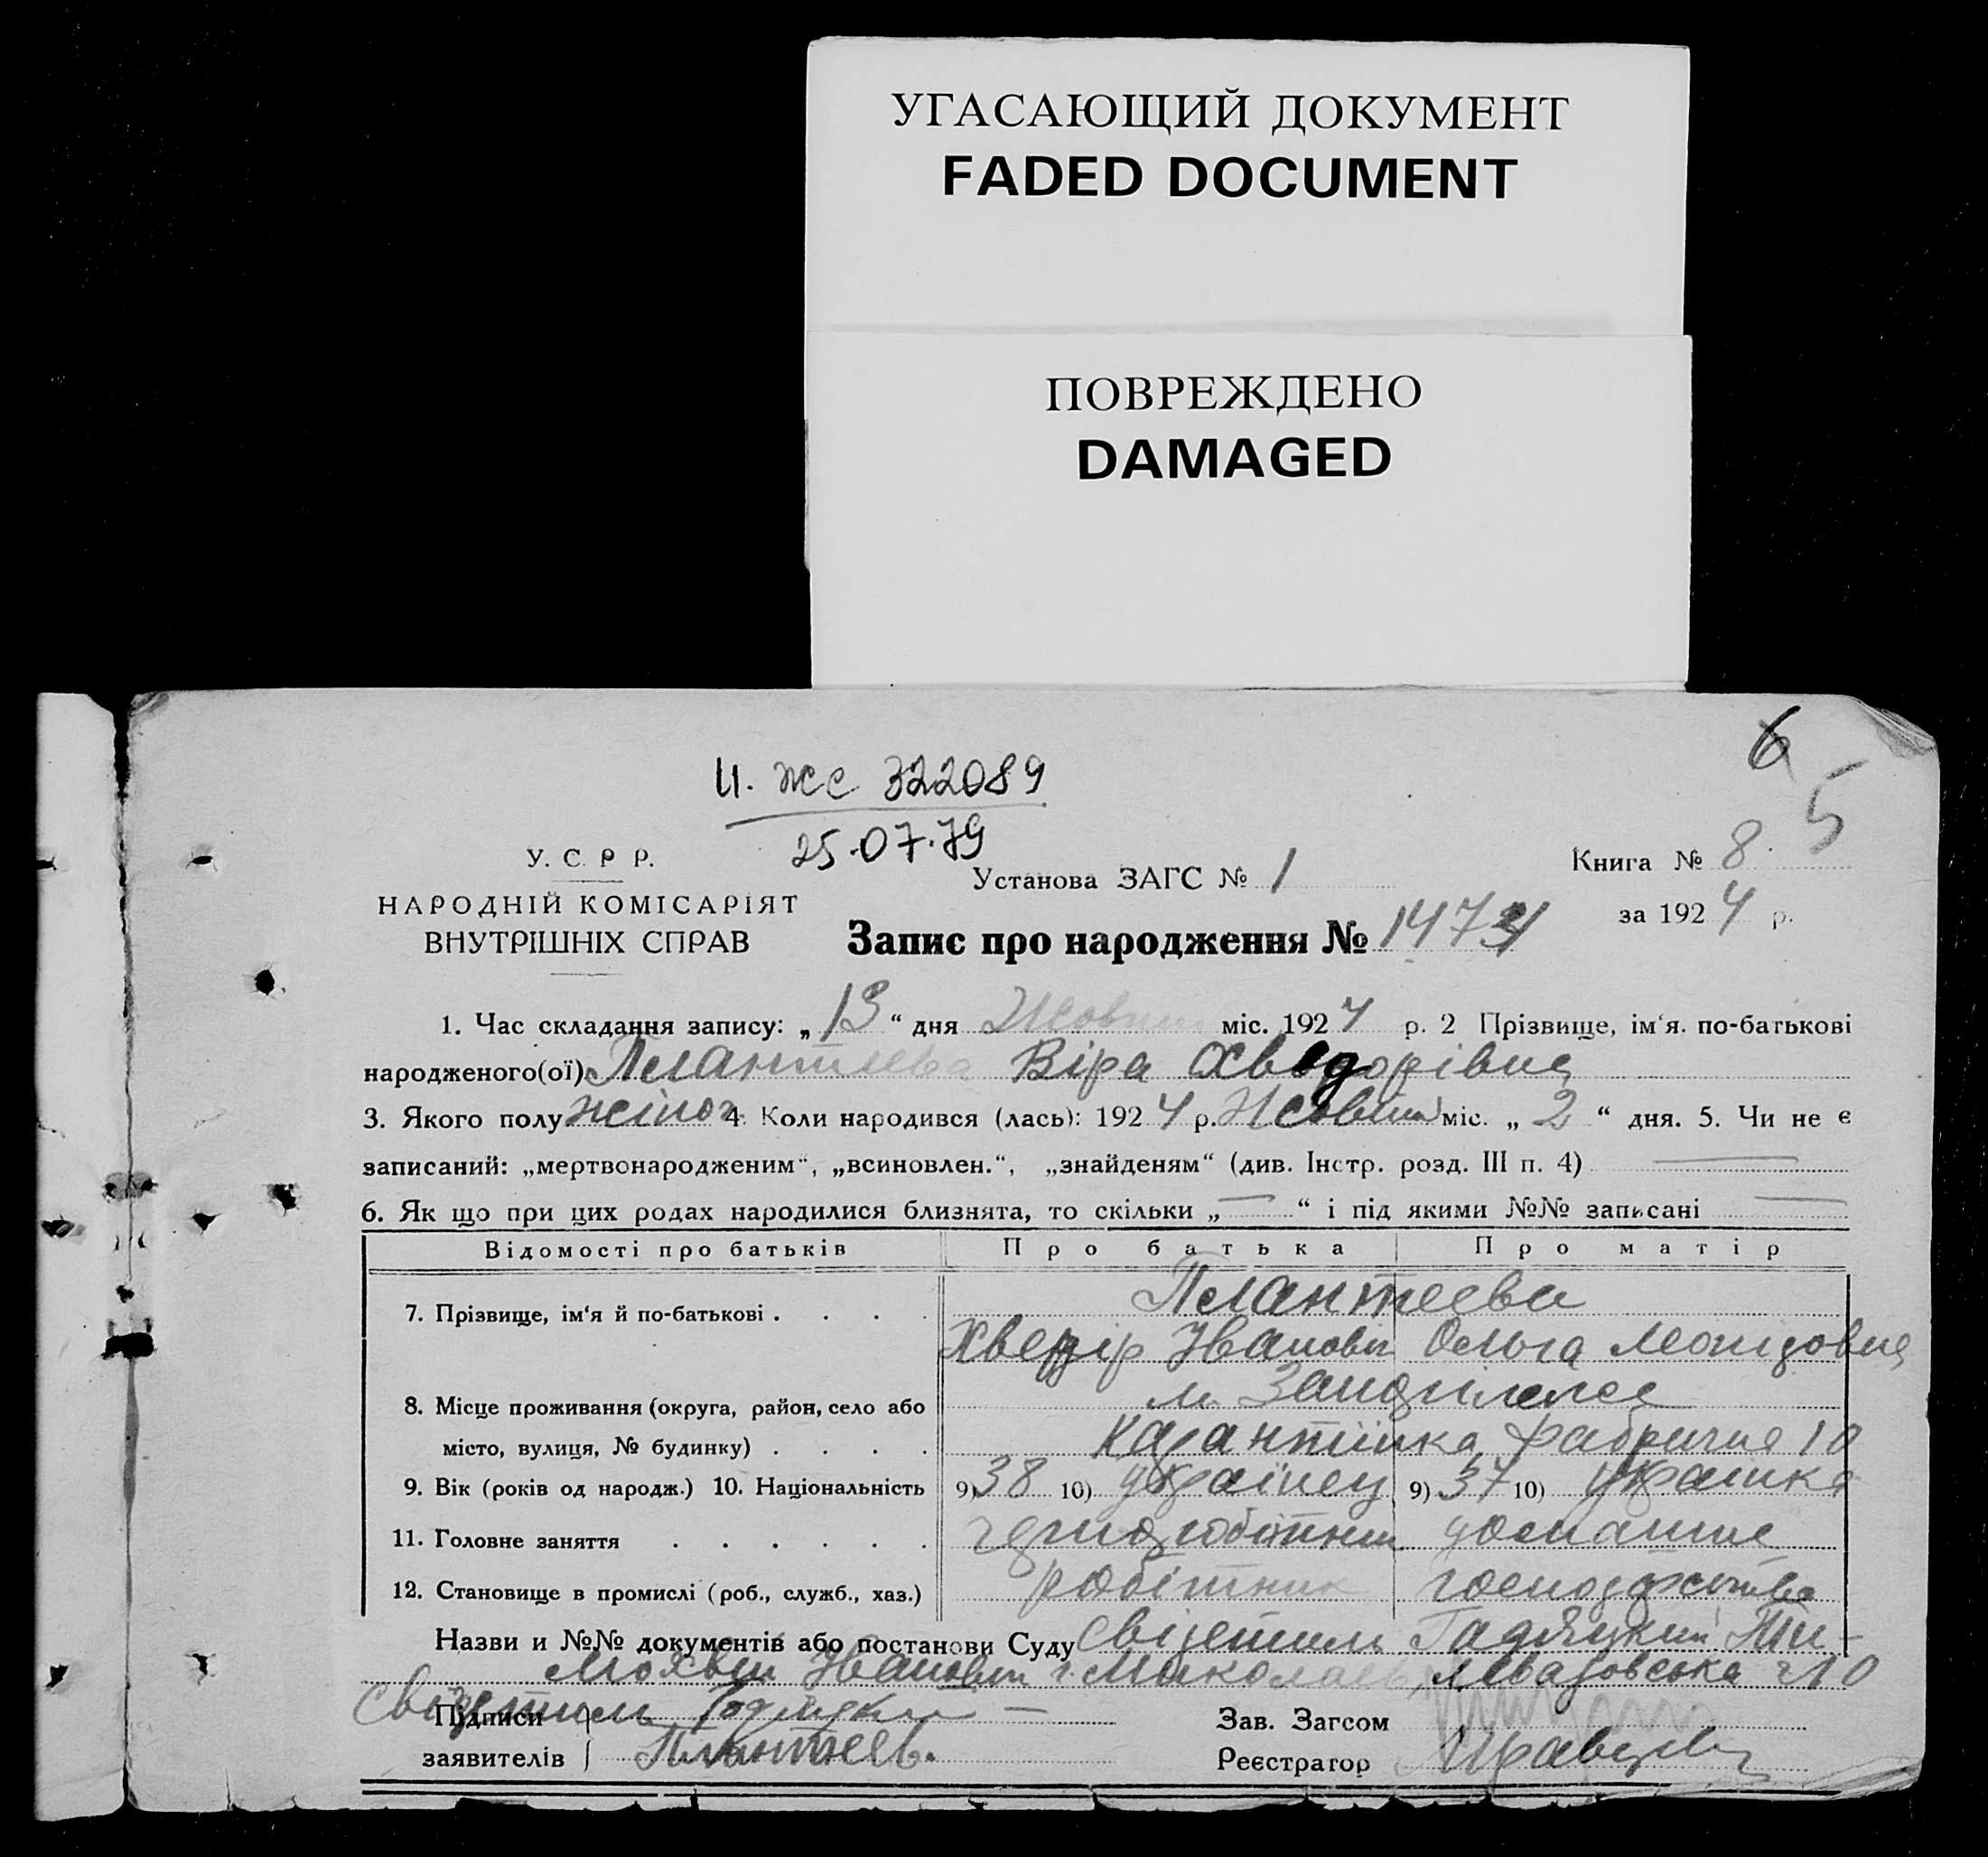 УГАСАЮЩИЙ ДОКУМЕНТ
FADED DOCUMENT
ПОВРЕЖДЕНО
DAMAGED
6
5
И. ЖС 322089
25.07.79
У. С. Р Р.
НАРОДНІЙ КОМІСАРІЯТ
ВНУТРІШНІХ СПРАВ
Установа ЗАГС № 1
Книга № 8
за 1924 р.
Запис про народження № 1474
1. Час складання запису: „13“ дня Жовтня міс. 1924 р. 2 Прізвище, ім‘я. по-батькові
народженого(ої) Плантеева Віра Хведорівна
3. Якого полу жіноч. 4. Коли народився (лась): 1924 р. Жовтня міс. „2“ дня. 5. Чи не є
записаний: „мертвонародженим“, „всиновлен.“, „знайденям“ (див. Інстр. розд. III п. 4) —
6. Як що при цих родах народилися близнята, то скільки „—“ і під якими №№ записані —
Відомості про батьків Про батька Про матір
7. Прізвище, ім‘я й по-батькові . . . . Плантеева
Хведір Іванович Ольга Леонідовна
8. Місце проживання (округа, район, село або м.
місто, вулиця, № будинку) . . . . Карантинка Фабрична 10
9. Вік (років од народж.) 10. Національність 9) 38 10) українец 9) 37 10) українка
11. Головне заняття . . . . . . домашнє
12. Становище в промислі (роб., служб., хаз.) робітник господарство
Назви и №№ документів або постанови Суду Свідетиль Гадяцкий Ти-
Іванович г. Миколаев,
Свідетиль —
Підписи
заявителів Плантеев.
Зав. Загсом
Реєстратор